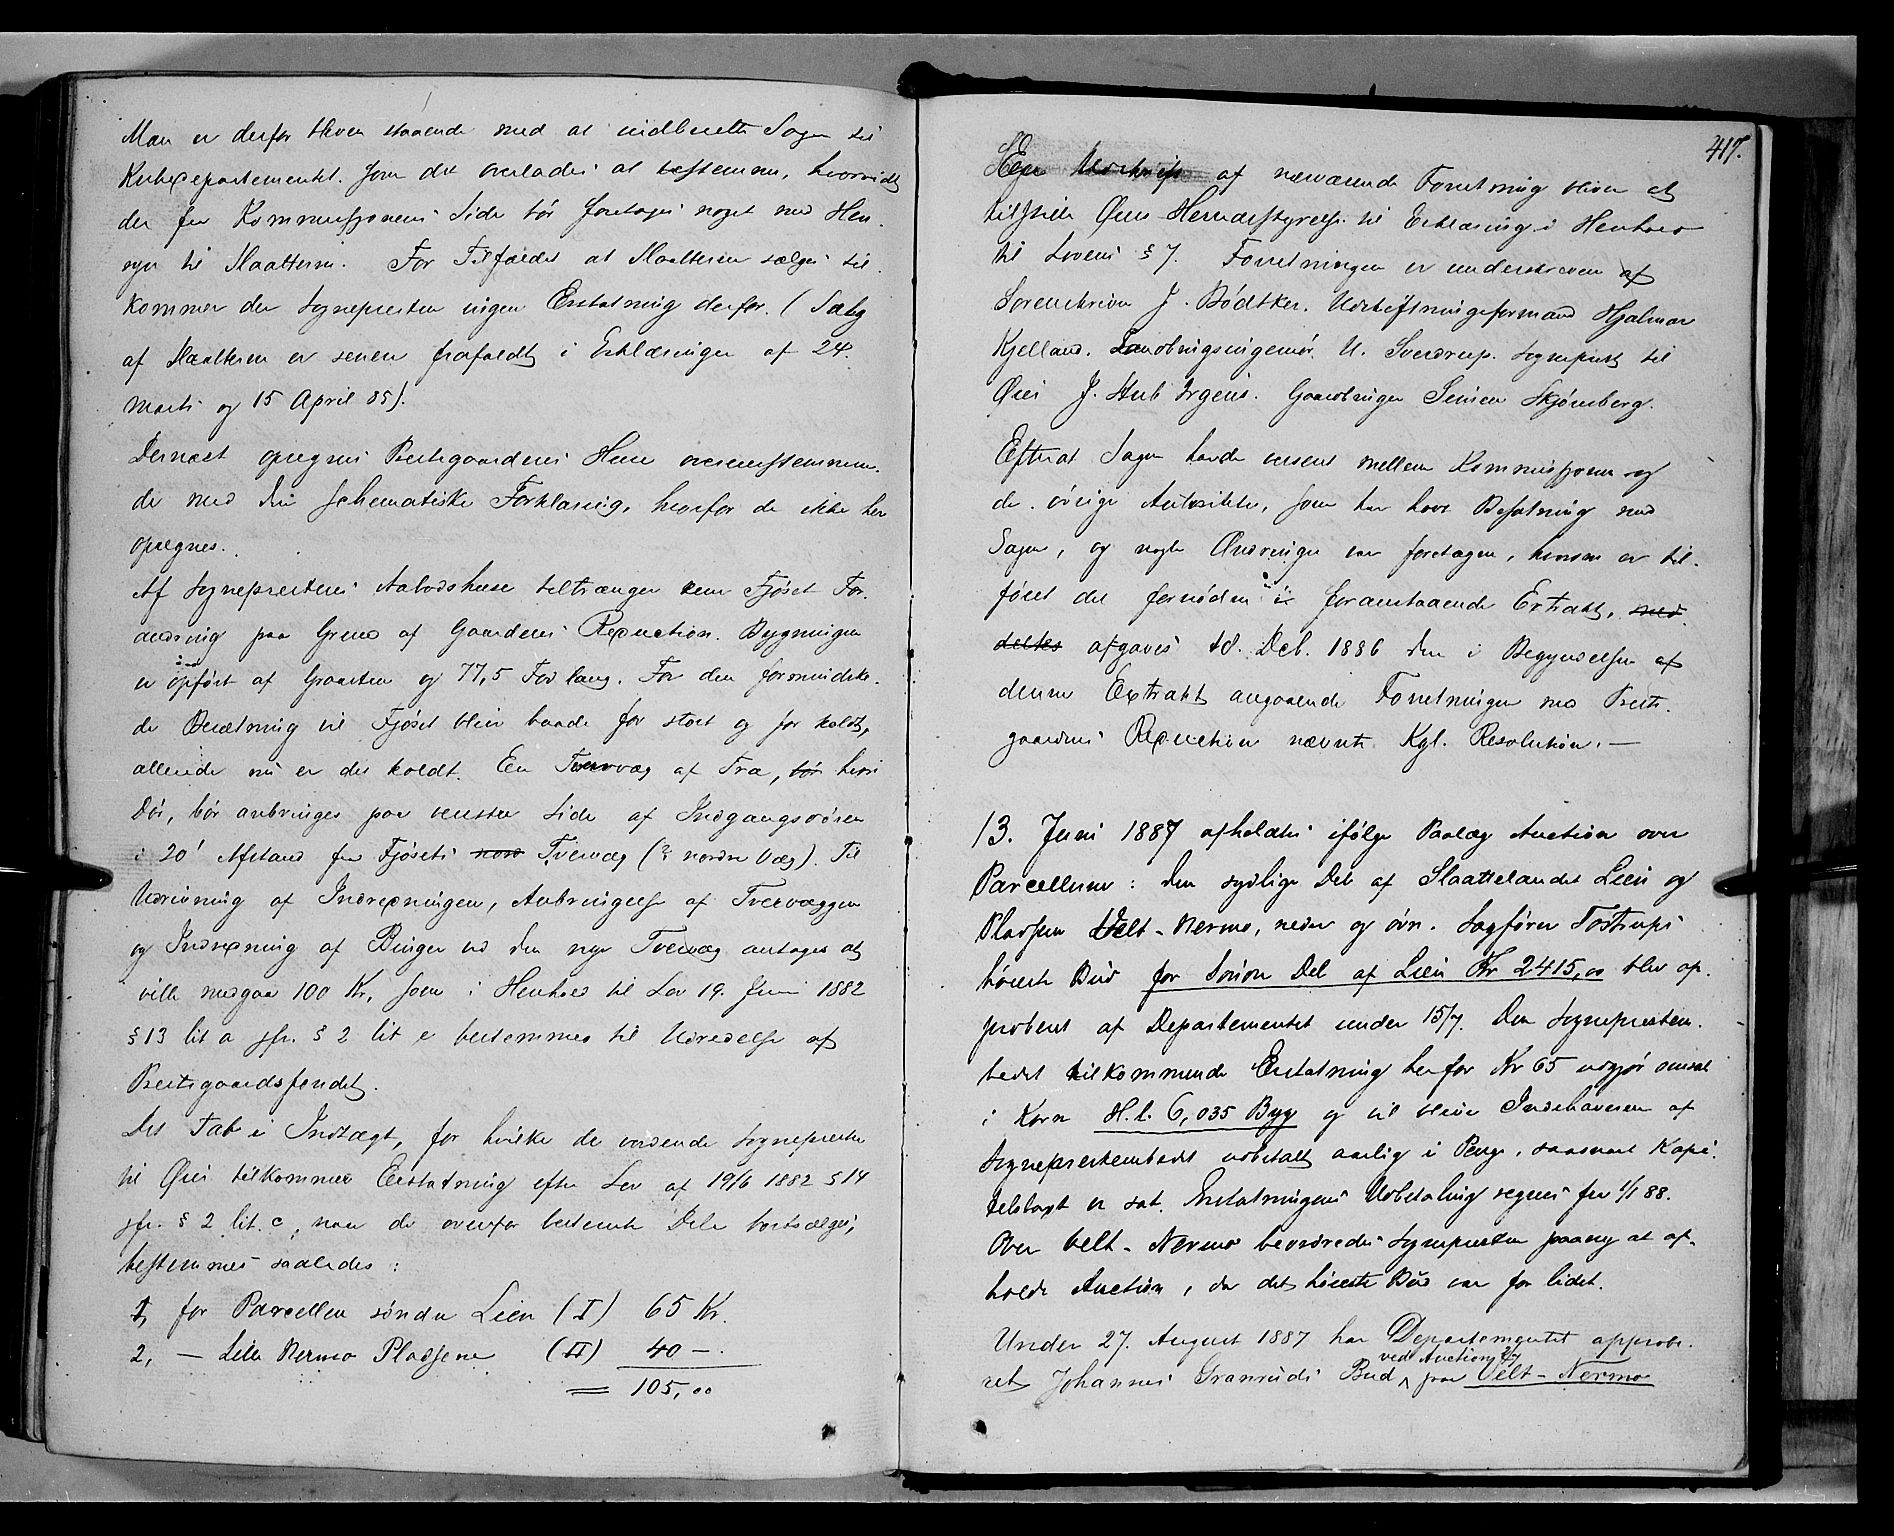 Man er derfor bleven staaende ved at indberette Sagen til
Kirkedepartementet. som det overlades at bestemme, hvorvidt
der fra Kommissjonens Side bør foretages noget med Hen-
syn til Slaatterne. For Tilfældet at Slaatterne sælges til-
kommer der Sognepresten ingen Erstatning derfor. (Salg
af Slaatterne er senere frafaldt i Erklæringer af 24.
Marts og 15 April 85).
Dernæst opregnes Prestegaardens Huse overensstemmen-
de med den schematiske Forklaring, hvorfor de ikke her
opregnes.
Af Sogneprestens Aabodshuse tiltrænger kun Fjøset For-
andring paa Grund af Gaardens Reduction. Bygningen
er opført af Graasten og 77,5 Fod lang. For den formindske-
de Besætning vil Fjøset blive baade for stort og for koldt,
allerede nu er det koldt. En Tvervæg af Træ, bør hvori
Dør, bør anbringes paa venstre Side af Indgangsdøren
i 20' Afstand fra Fjøsets nord Tvervæg (nordre Væg). Til
Udrivning af Indredningen, Anbringelse af Tvervæggen
og Indredning af Binger ved den nye Tvervæg antages at
ville medgaa 100 Kr, som i Henhold til Lov 19. Juni 1882
§ 13 lit a jfr. § 2 lit e bestemmes til Udredelse af
Prestegaardsfondet.
Det Tab i Indtægt, for hvilke de værende Sogneprester
til Øier tilkommer Erstatning efter Lov af 19/6 1882 § 14
jfr. § 2 lit. c, naar de ovenfor bestemte Dele bortsælges,
bestemmes saaledes:
1, for Parcellen søndre Lien (I) 65 Kr.
2, — Lille Nermo Pladsene (II) 40 —.
= 105,00
417.
Udskrift af nærværende Forretning bliver at
tilstille Øier Herredsstyrelse til Erklæring i Henhold
til Lovens § 7. Forretningen er underskreven af
Sorenskriver J. Bödtker. Udskiftningsformand Hjalmar
Kjelland. Landbrugsingeniør U. Sverdrup. Sogneprest til
Øier J. Stub Irgens. Gaardbruger Simen Skjønsberg.
Efterat Sagen havde verseret mellem Kommissjonen og
de øvrige Autoriteter, som har havt Befatning med
Sagen, og nogle Ændringer var foretagen, hvorom er til-
føiet det fornødne i foranstaaende Extrakt, med-
deltes afgaves 18. Dcb. 1886 den i Begyndelsen af
denne Extrakt angaaende Forretningen med Prest-
gaardens Reduction nævnte Kgl. Resolution. —
13. Juni 1887 afholdtes ifølge Paalæg Auction over
Parcellerne: den sydlige Del af Slaattelandet Lien og
Pladsen Velt-Nermo, nedre og øvre. Sagfører Tostrups
høieste Bud for Søndre Del af Lien Kr 2415,00 blev ap-
proberet af Departementet under 15/7. Den Sogneprestem-
bedet tilkommende Erstatning herfor Kr 65 udgjør omsat
i Korn H.l. 6,035 Byg og vil blive Indehaveren af
Sogneprestembedet udbetalt aarlig i Penge, saasnart Kapi-
telstaxt er sat. Erstatningens Udbetaling regnes fra 1/1 88.
Over Velt-Nermo beordredes Sognepresten paany at af-
holde Auction, da det høieste Bud var for lidet.
Under 27. August 1887 har Departementet approbe-
ret Johannes Granruds Bud ved Auction paa Velt-Nermo